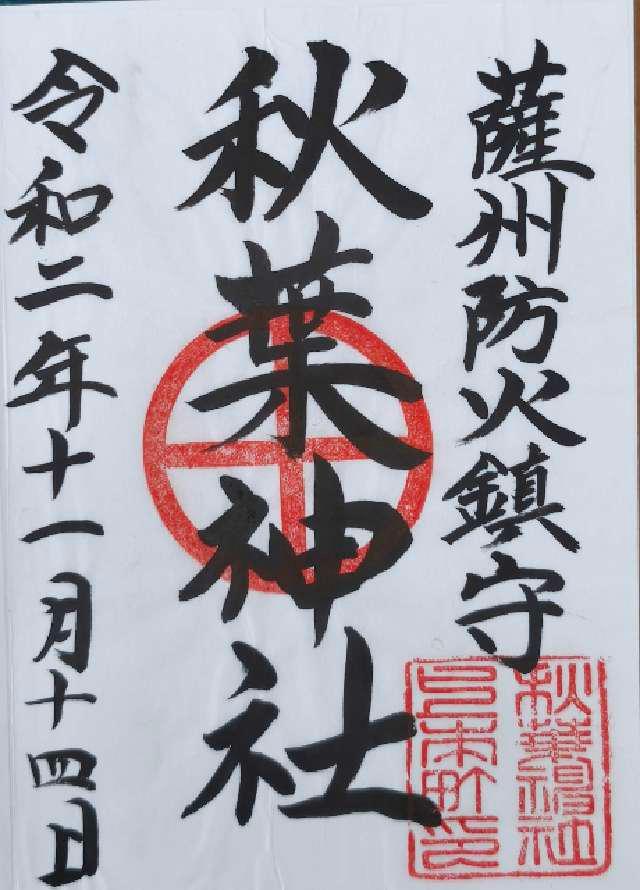 薩州防火鎮守
秋葉神社
令和二年十一月十四日